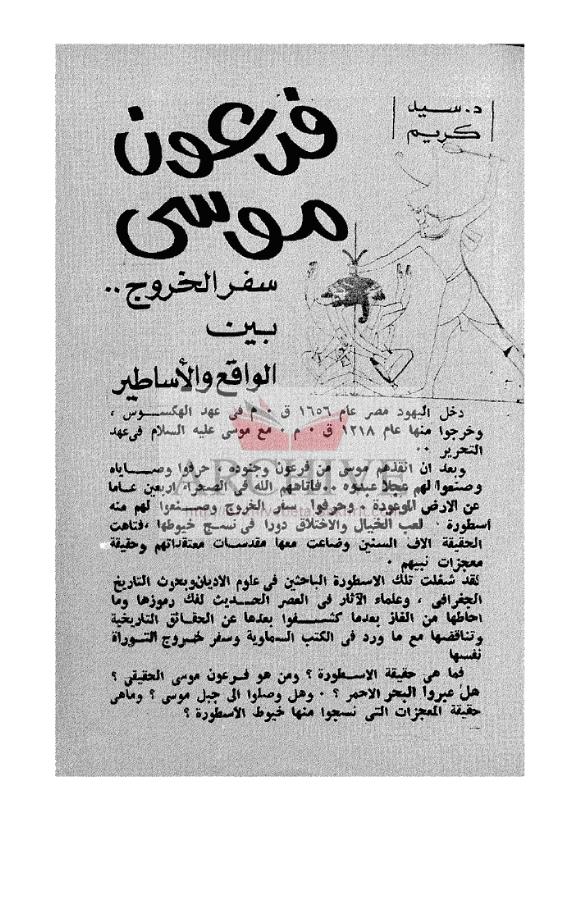 د. سيد
كريم
فرعون
موسى
سفر الخروج ..
بين
الواقع والأساطير
دخل اليهود مصر عام ١٦٥٦ ق ٠ م فى عهد الهكسوس ،
وخرجوا منها عام ١٢١٨ ق ٠ م ٠ مع موسى عليه السلام فى عهد
التحرير ٠٠
وبعد ان انقذهم موسى من فرعون وجنوده ، حرفوا وصاياه
وصنعوا لهم عجلا عبدوه ٠٠ فأتاههم الله فى الصحراء اربعين عاما
عن الارض الموعودة ٠ وحرفوا سفر الخروج وصنعوا لهم منه
اسطورة ٠ لعب الخيال والاختلاق دورا فى نسج خيوطها ، فتاهت
الحقيقة الاف السنين وضاعت معها مقدسات معتقداتهم وحقيقة
معجزات نبيهم ٠
لقد شغلت تلك الاسطورة الباحثين فى علوم الاديان وبحوث التاريخ
الجغرافى ، وعلماء الآثار فى العصر الحديث لفك رموزها وما
احاطها من الغاز بعدما كشفوا بعدها عن الحقائق التاريخية
وتناقضها مع ما ورد فى الكتب السماوية وسفر خروج التوراة
نفسها
فما هى حقيقة الاسطورة ؟ ومن هو فرعون موسى الحقيقى ؟
هل عبروا البحر الاحمر ؟ ٠ وهل وصلوا الى جبل موسى ؟ وماهى
حقيقة المعجزات التى نسجوا منها خيوط الأسطورة ؟
ARCHIVE